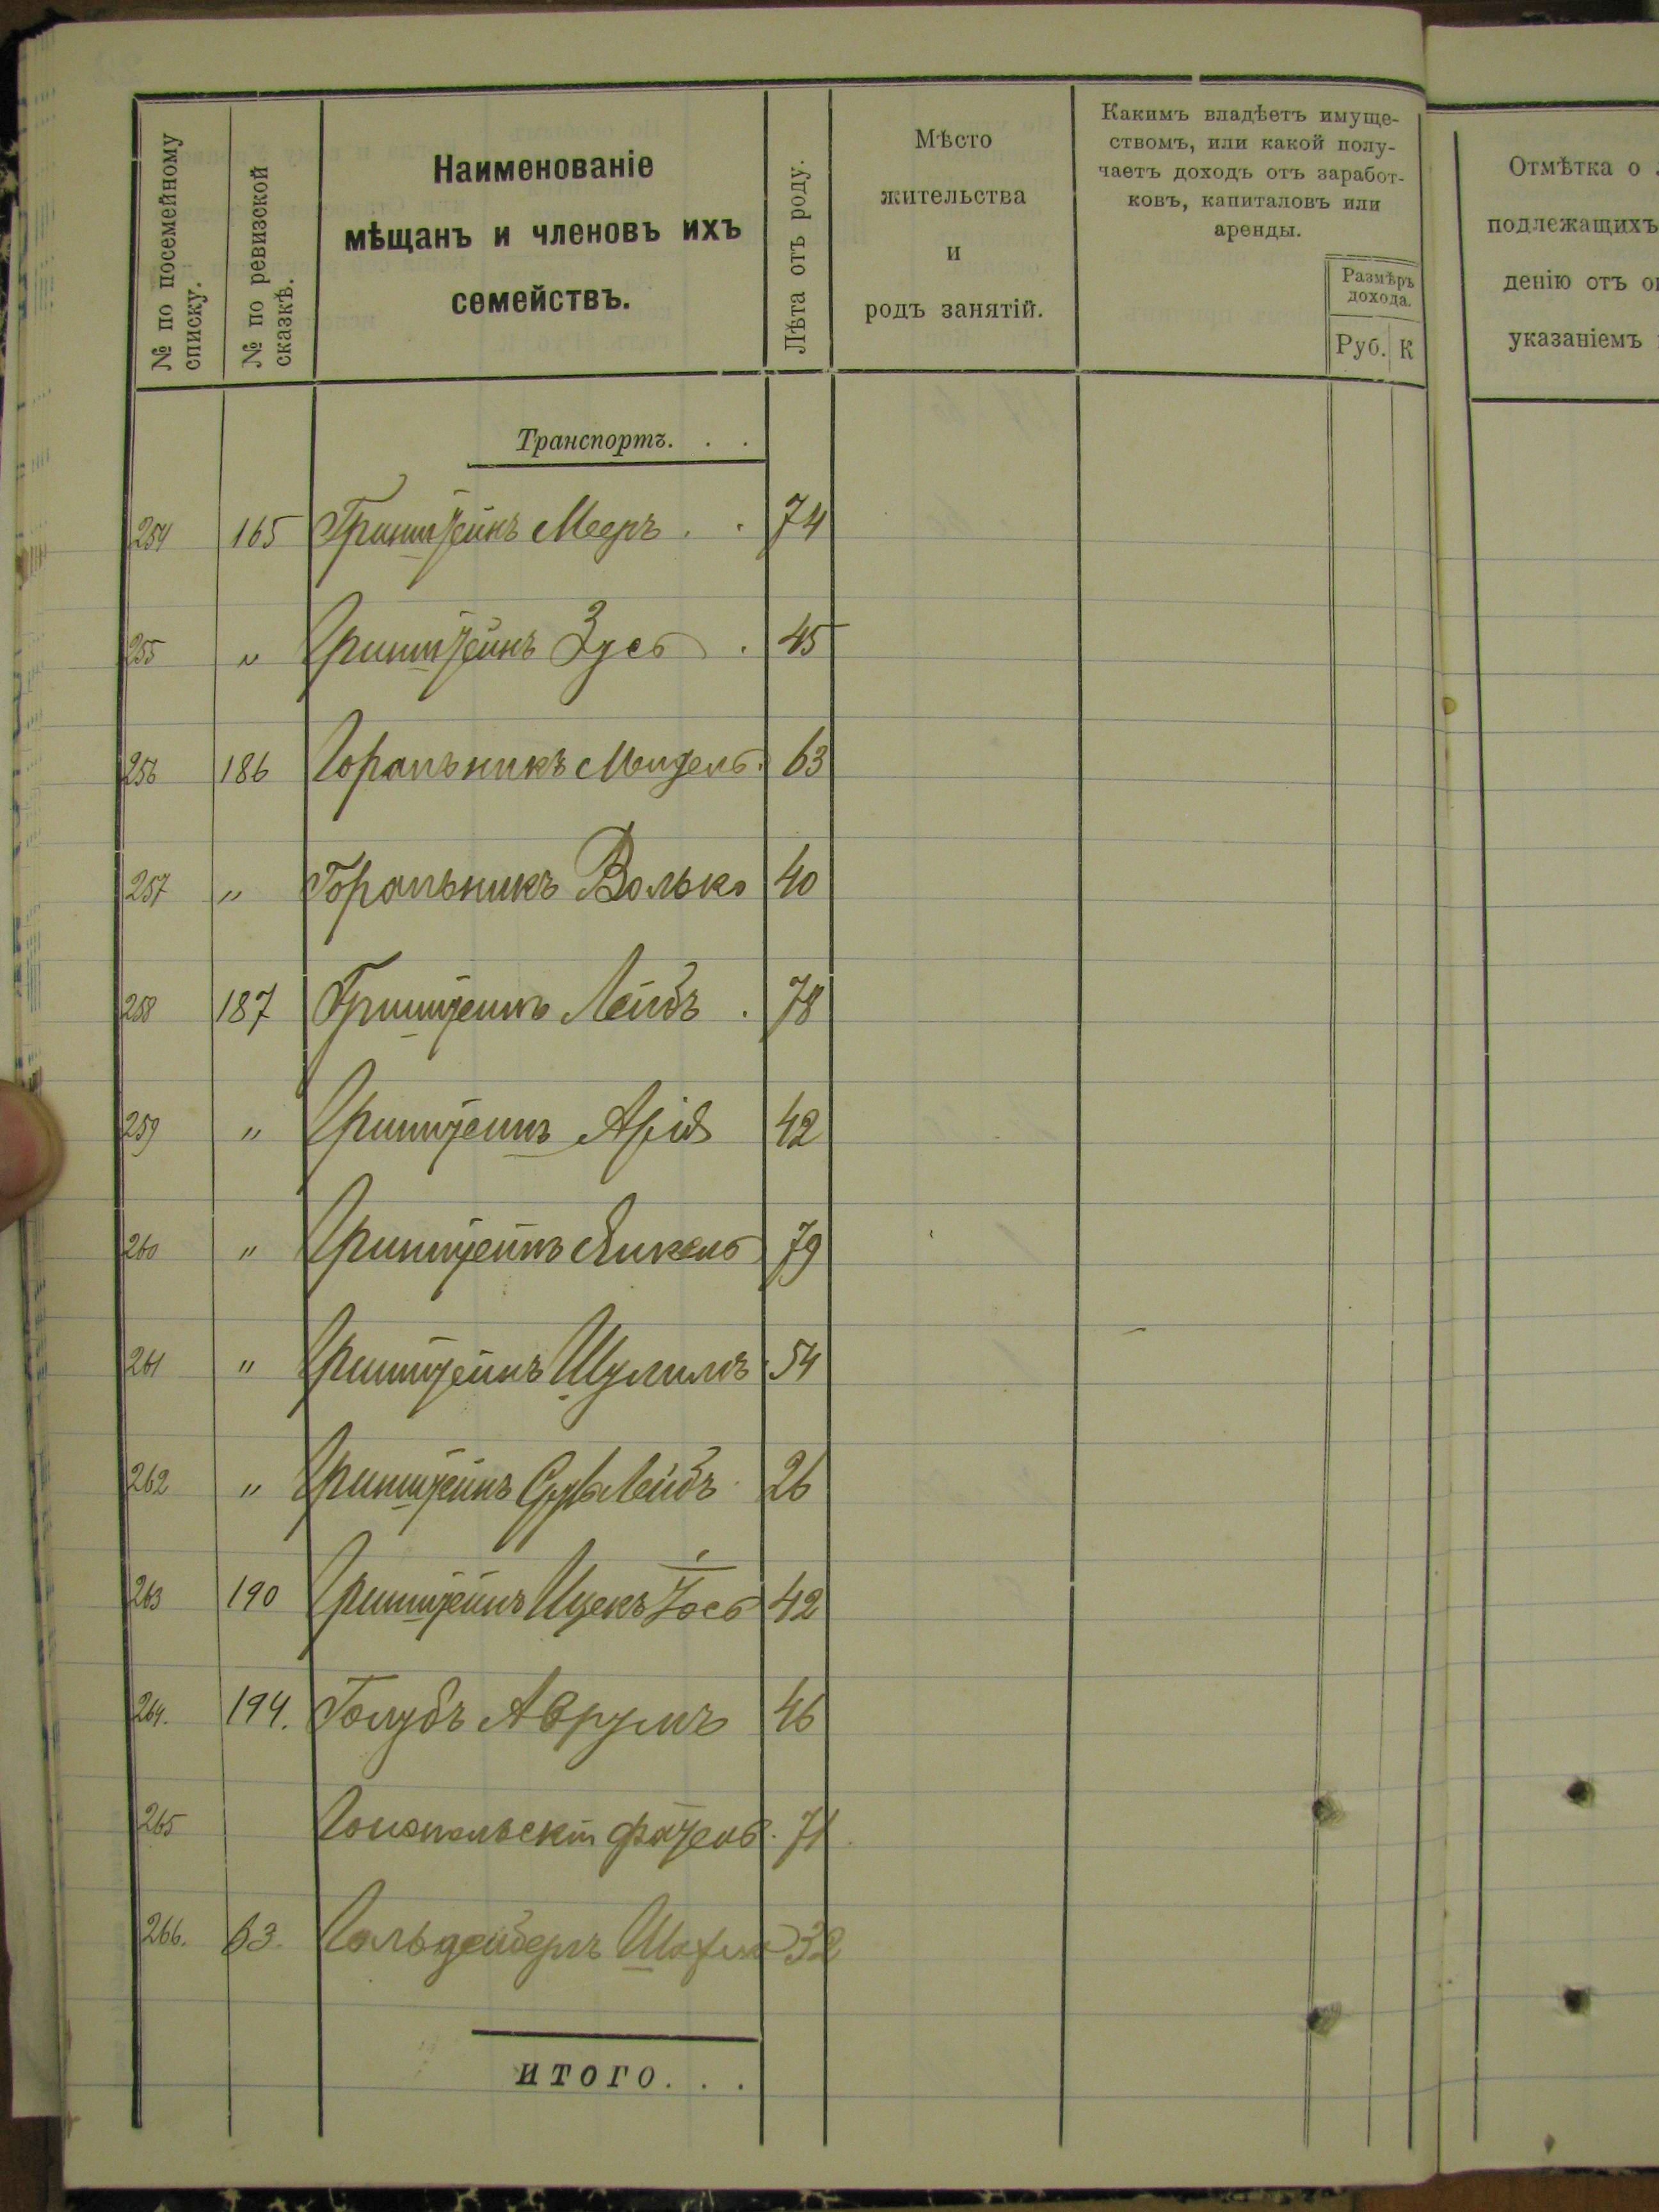 № по посемейному списку.
№ по ревизской сказкѣ.
Наименованіе
мѣщанъ и членовъ ихъ
семействъ.
Лѣта отъ роду.
Мѣсто
жительства
и
родъ занятій.
Какимъ владѣетъ имуще-
ствомъ, или какой полу-
чаетъ доходъ отъ заработ-
ковъ, капиталовъ или
аренды.
Размѣръ
дохода.
Руб. К
Отмѣтка о
подлежащихъ
денію отъ
указаніемъ
Транспортъ. . .
254 165 Гринштейнъ Мееръ . . 74
255 " Гринштейнъ Зусь . 45
256 186 63
257 " Волько 40
258 187 Гринштейнъ Лейбъ . 78
259 " Гринштейнъ Арія 42
260 " Гринштейнъ Янкель 79
261 " Гринштейнъ Шулимъ 54
262 " Гринштейнъ Сруль Лейбъ 26
263 190 Гринштейнъ Ицекъ Іось 42
264. 194. Голубъ Аврумъ 46
265 71
266. 63. 32
ИТОГО. . .